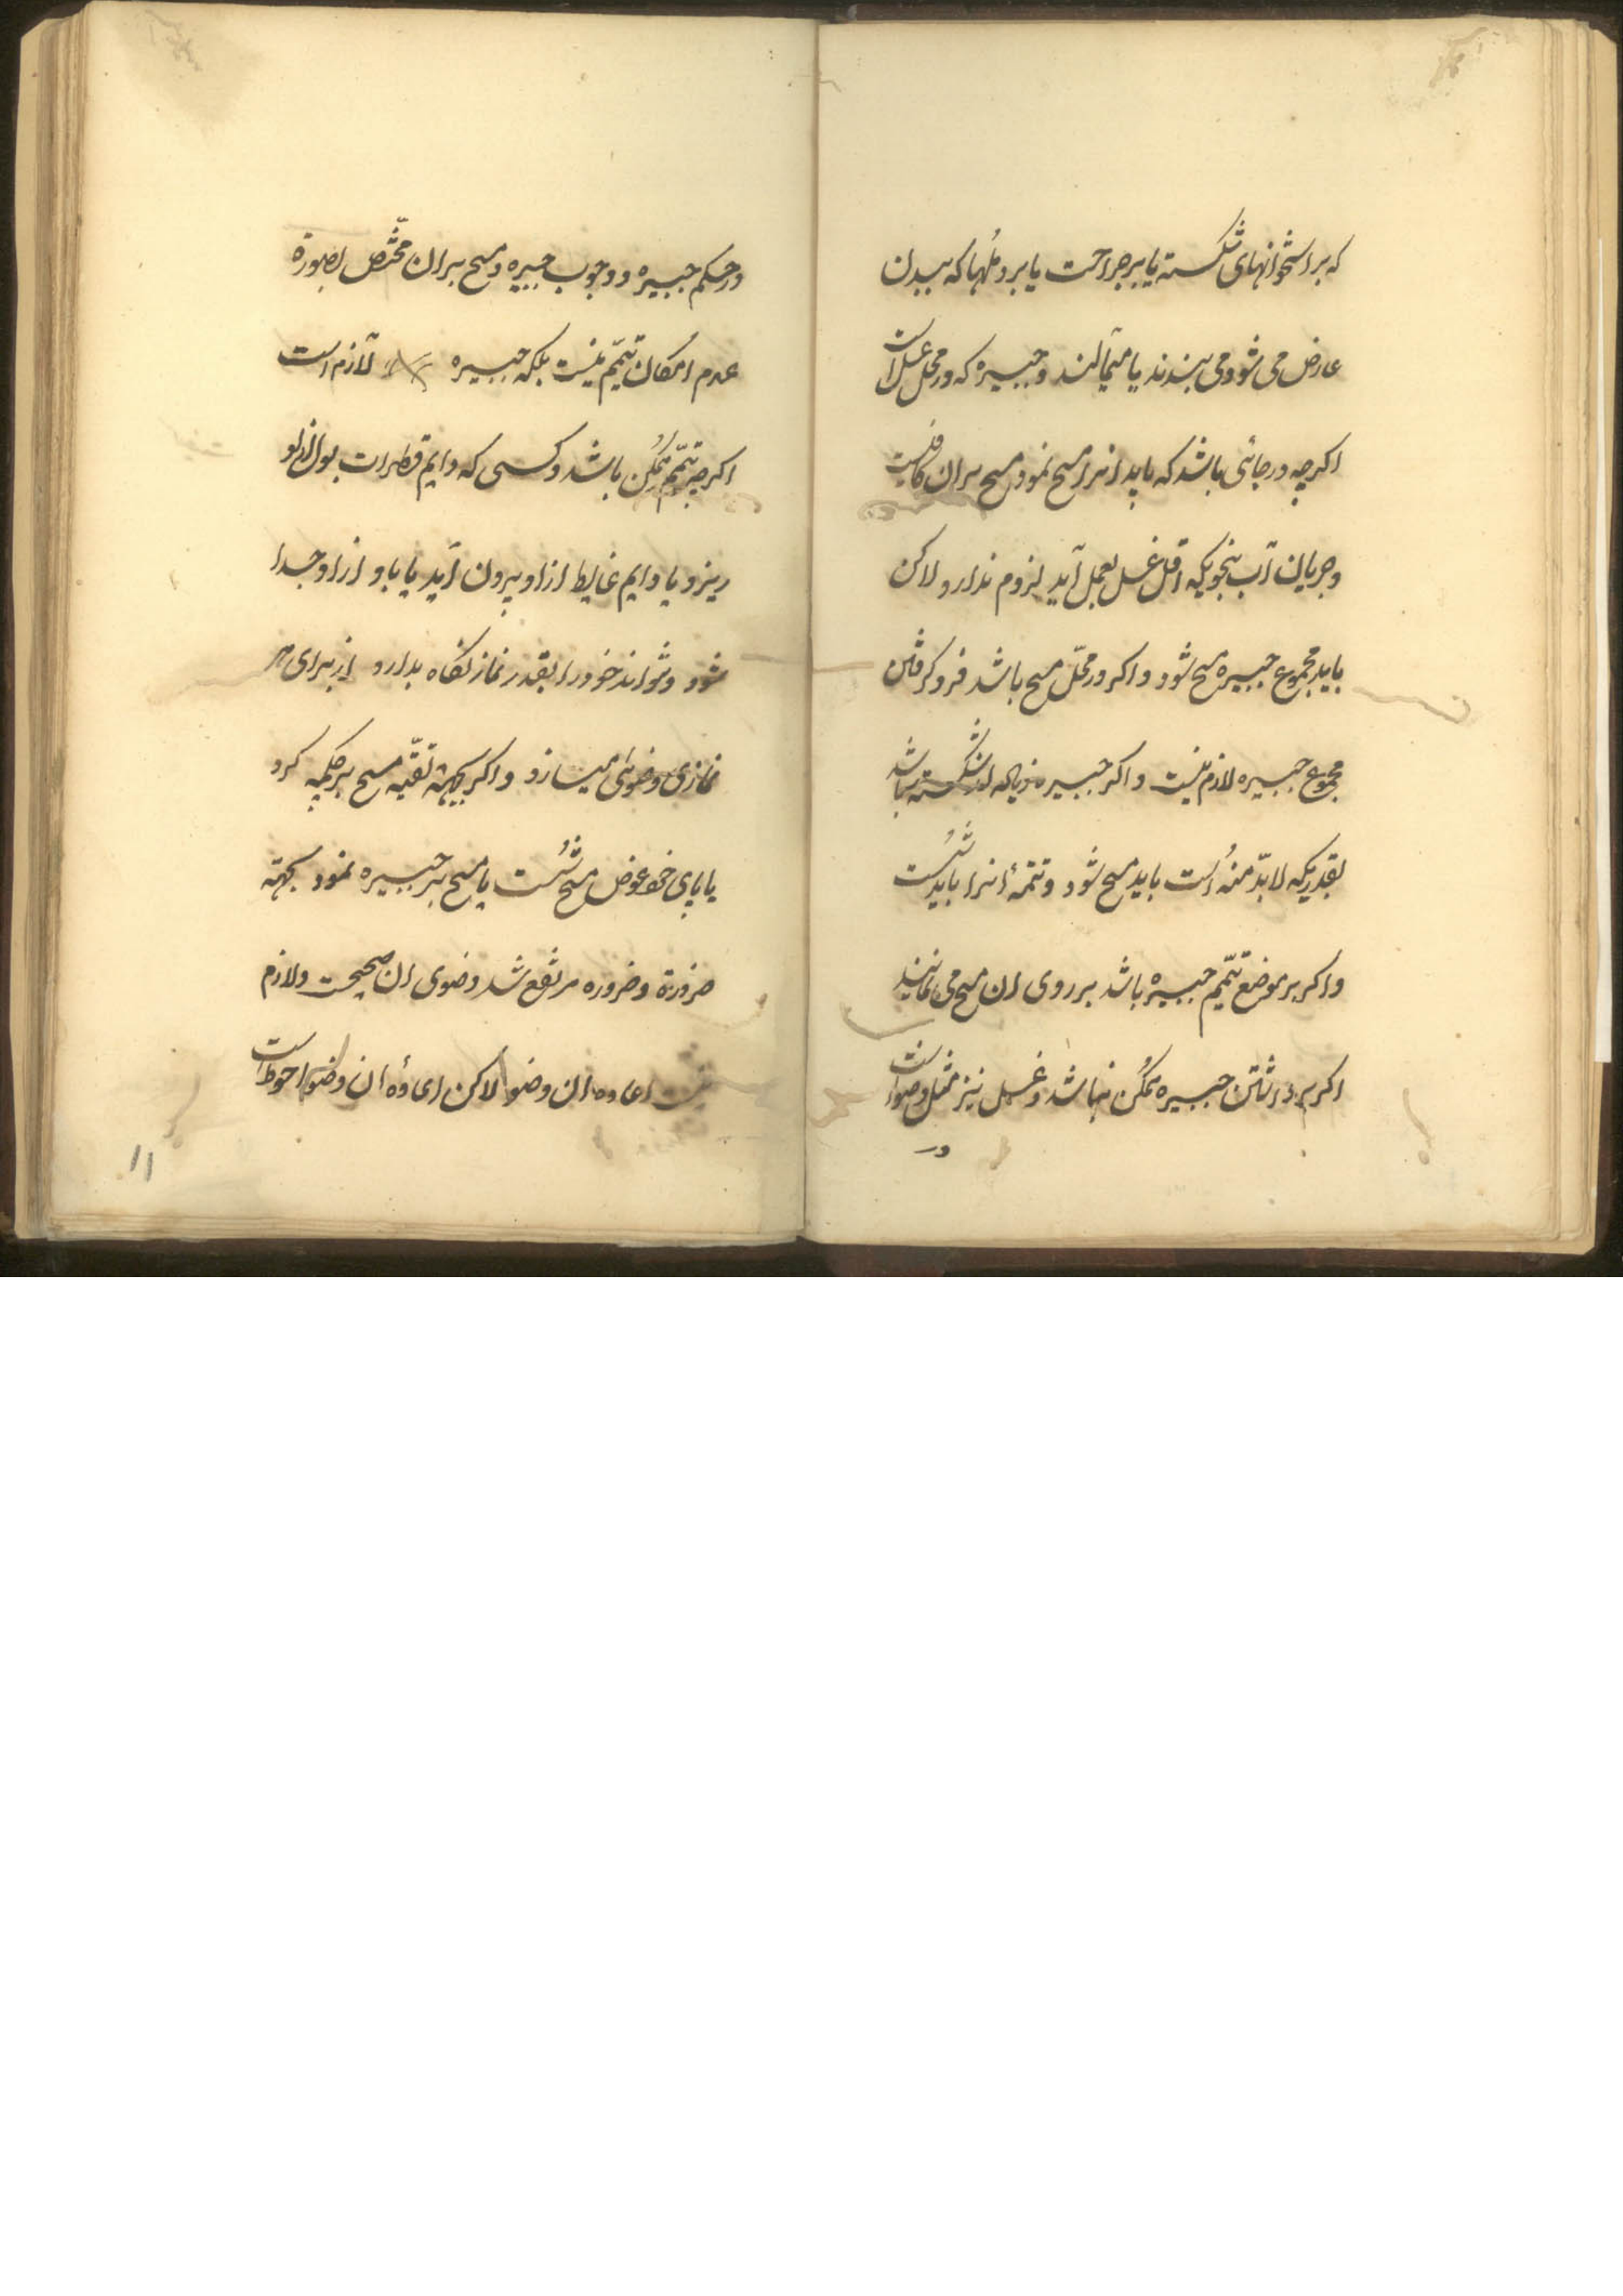 که بر استخوانهای شکسته یا بر جراحت یا بر دملها که ببدن
عارض می شود و می بندند یا میمالند و جبیره که در محل غسل است
اکرچه در جائی باشد که باید انرا مسح نمود مسح بران کافیست
و جریان آب بنحویکه اقل غسل بعمل آید لزوم ندارد و لاکن
باید مجموع جبیره مسح شود و اکر در محلّ مسح باشد فرو کرفتن
مجموع جبیره لازم نیست و اکر جبیره شکسته باشد
بقدریکه لابدّ منه است باید مسح شود و تتمهٔ انرا باید شست
و اکر بر موضع تیمّم جبیره باشد بر روی ان مسح می نمایند
اکر برداشتن جبیره ممکن نباشد و غسل نیز مثل وضو است
در
در حکم جبیره و وجوب جبیره و مسح بران مختصّ بصورة
عدم امکان تیمّم نیست بلکه جبیره لازم است
اکرچه تیمّم ممکن باشد و کسی که دایم قطرات بول از او
ریزد یا دایم غایط از او بیرون آید یا باد از او جدا
شود و نتواند خود را بقدر نماز نکاه بدارد از برای هر
نمازی وضوئی میسازد و اکر بجهة تقیّه مسح بر چکمه کرد
یا پای خود عوض مسح شست یا مسح بر جبیره نمود بجهته
ضرورة و ضروره مرتفع شد وضوی ان صحیحست و لازم
نیست اعاده ان وضو لاکن اعادهٔ ان وضو احوط است
۱۱